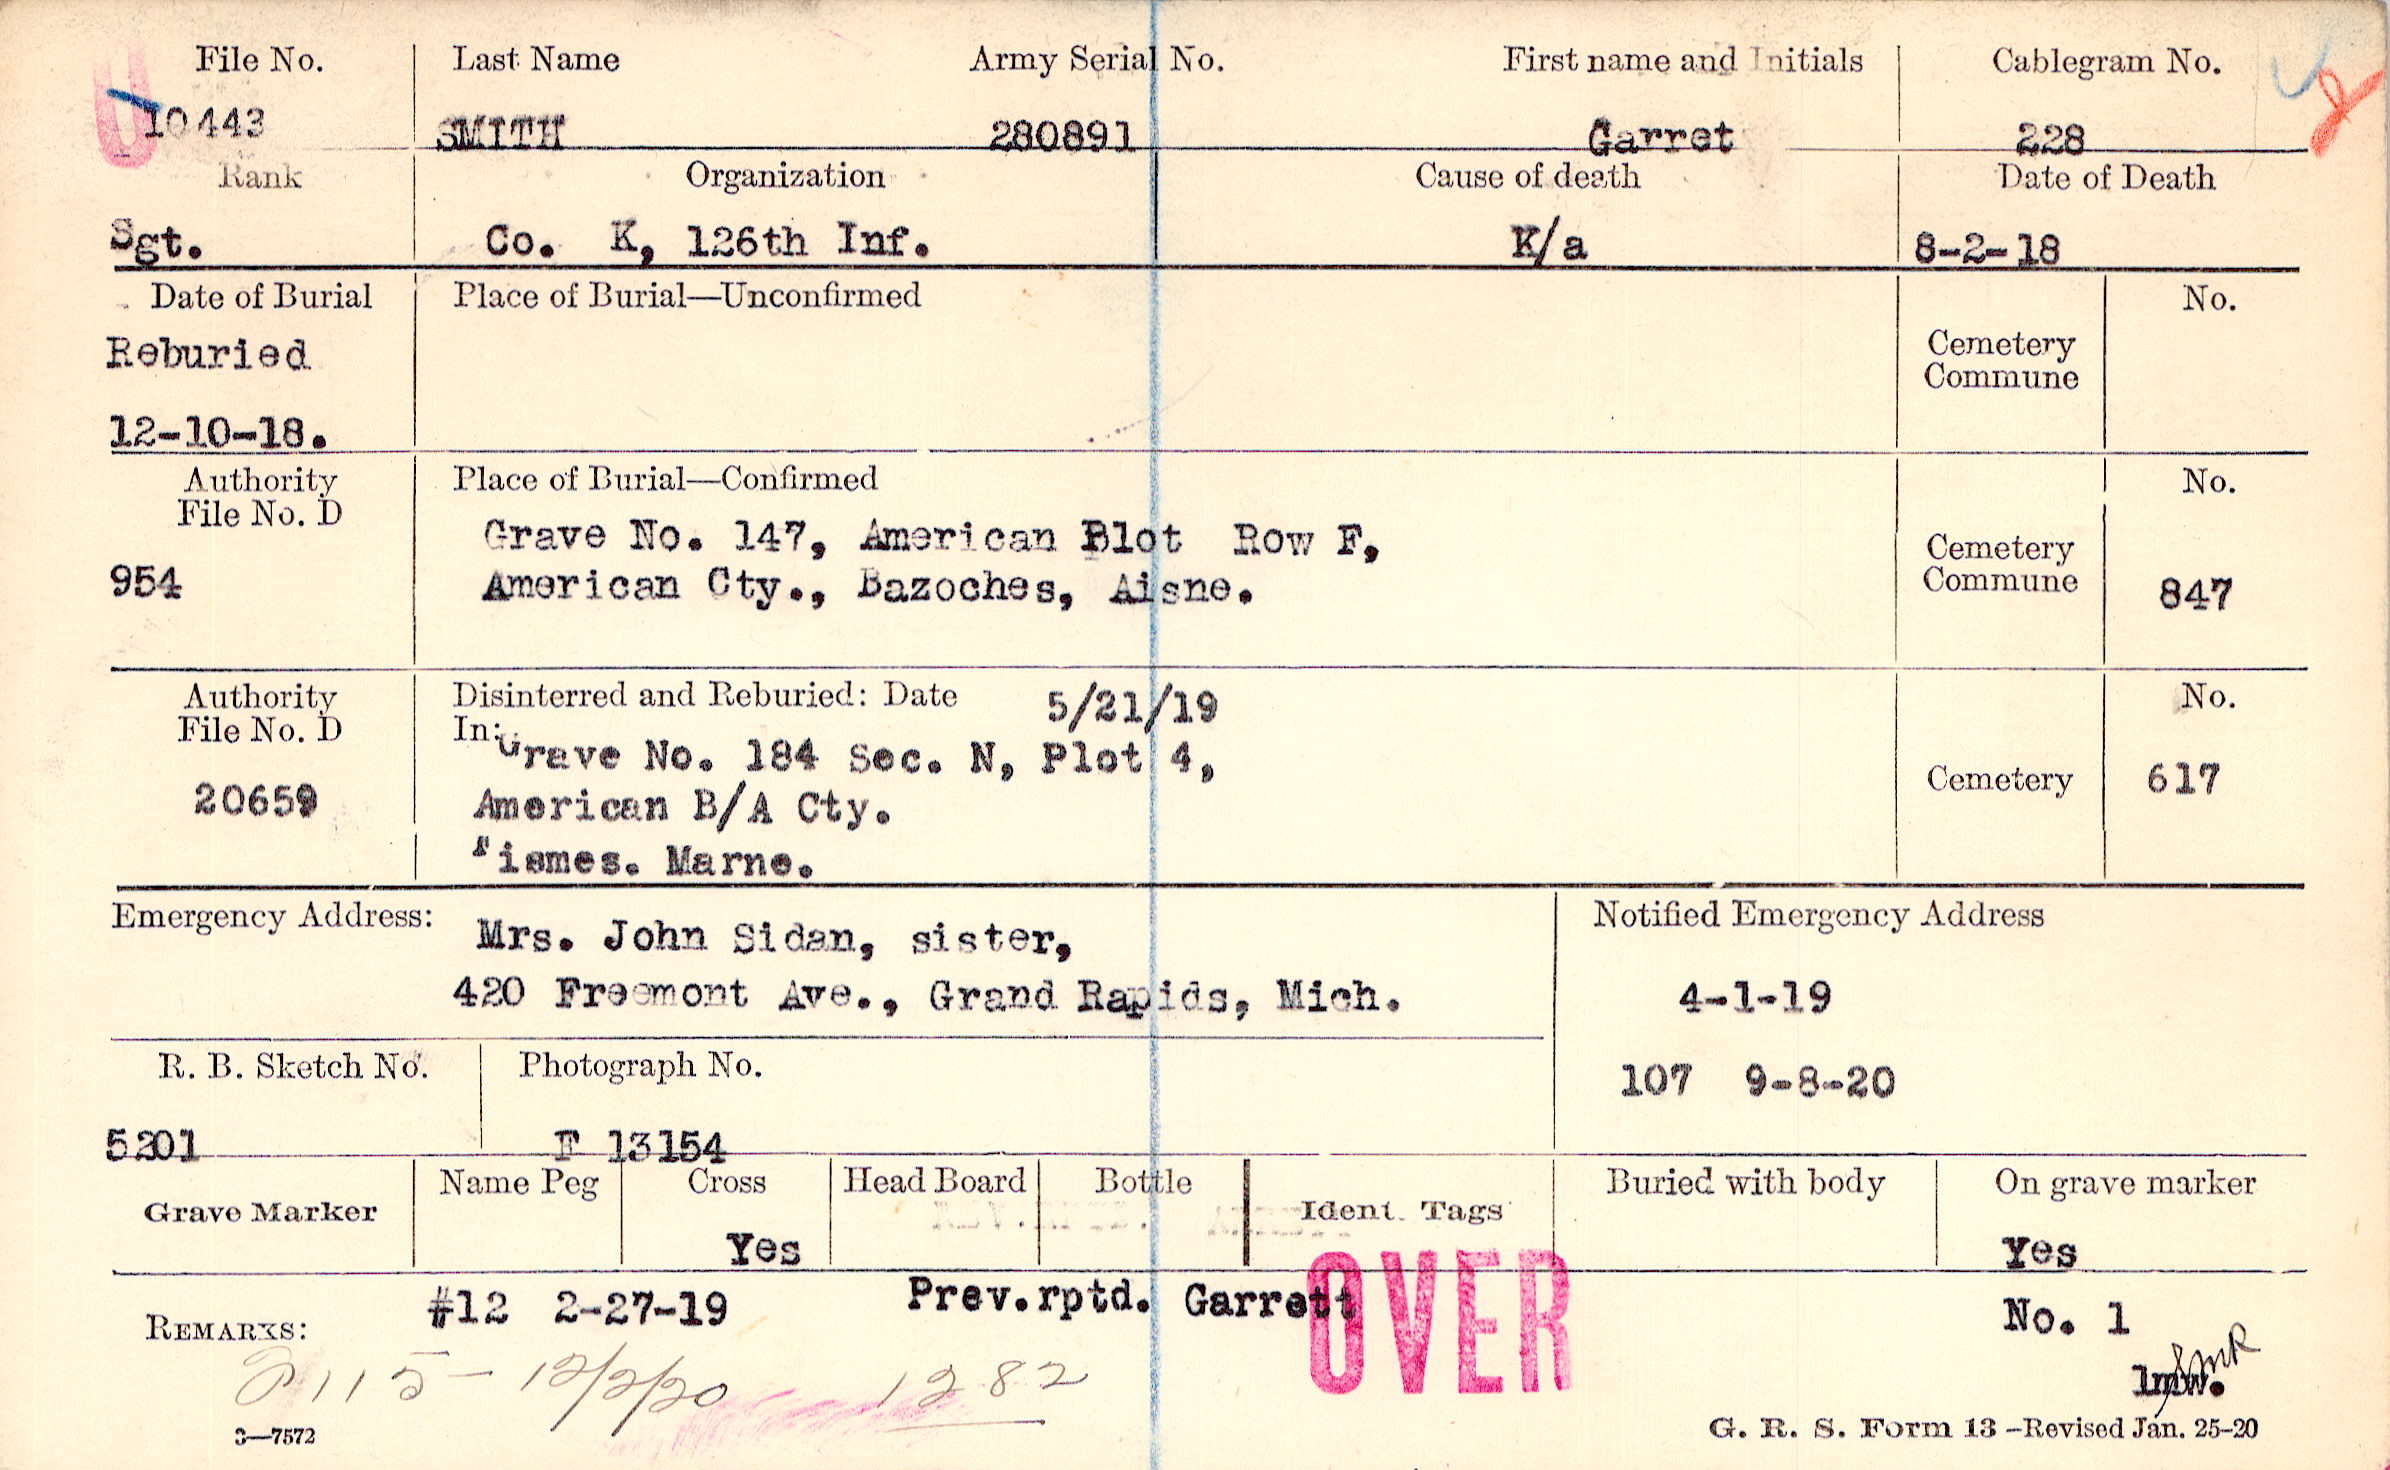 File No. Last Name Army Serial No. First name and Initials Cablegram No.
10443 SMITH 280891 Garret 228
Rank Organization Cause of death Date of Death
Sgt. Co. K, 126th Inf. K/a 8-2-18
Date of Burial Place of Burial—Unconfirmed No.
Reburied Cemetery
Commune
12-10-18.
Authority Place of Burial—Confirmed No.
File No. D
Grave No. 147, American Blot Row F, Cemetery
954 American Cty., Bazoches, Aisne. Commune 847
Authority Disinterred and Reburied: Date 5/21/19 No.
File No. D In:
Grave No. 184 Sec. N, Plot 4,
20659 American B/A Cty. Cemetery 617
Fismes. Marne.
Emergency Address: Notified Emergency Address
Mrs. John Sidan, sister,
420 Freemont Ave., Grand Rapids, Mich. 4-1-19
R. B. Sketch No. Photograph No. 107 9-8-20
5201 F 13154
Grave Marker Name Peg Cross Head Board Bottle Ident. Tags Buried with body On grave marker
Yes Yes
REMARKS: #12 2-27-19 Prev.rptd. Garrett No. 1
OVER
115 - 12/2/20 1282
3—7572 G. R. S. Form 13 -Revised Jan. 25-20